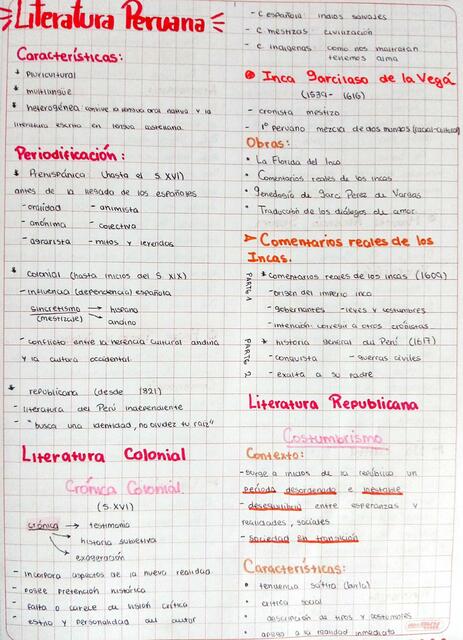 Literatura Peruana
Características:
* Pluricultural
* multilingüe
* heterogénea convive la lengua oral nativa y la
literatura escrita en lengua castellana.
Periodificación:
* Prehispánica (hasta el S. XVI)
antes de la llegada de los españoles
- oralidad - animista
- anónima - colectiva
- agrarista - mitos y leyendas
* colonial (hasta inicios del S. XIX)
- influencia (dependencia) española
sincretismo → hispano
(mestizaje) → andino
- conflicto entre la herencia cultural andina
y la cultura occidental
* republicana (desde 1821)
- literatura del Perú independiente
- "busca una identidad, no olvidez tu raiz"
Literatura Colonial
Crónica Colonial
(S. XVI)
crónica → testimonio
→ historia subjetiva
→ exageración
- incorpora aspectos de la nueva realidad
- posee pretención histórica
- falta o carece de visión crítica
- estilo y personalidad del autor
- c española indios salvajes
- c. mestizas civilización
- c. indígenas como nos maltratan
tenemos alma
Inca Garcilaso de la Vega
(1539 - 1616)
- cronista mestizo
- 1° peruano mezcla de dos mundos (racial-cultural)
Obras:
• La Florida del Inca
• Comentarios reales de los incas
• Genealogía de Garci Pérez de Vargas
• Traducción de los diálogos de amor.
➤ Comentarios reales de los
Incas.
PARTE 1
* comentarios reales de los incas (1609)
- origen del imperio inca
- gobernantes - leyes y costumbres
- intención corregir a otros cronistas
PARTE 2
* historia general del Perú (1617)
- conquista - guerras civiles
- exalta a su padre
Literatura Republicana
Costumbrismo
Contexto:
- surge a inicios de la república un
período desordenado e inestable
- desequilibrio entre esperanzas y
realidades, sociales
- sociedad en transición
Características:
• tendencia satírica (burla)
• crítica social
• descripción de tipos y costumbres
• apego a la realidad inmediata